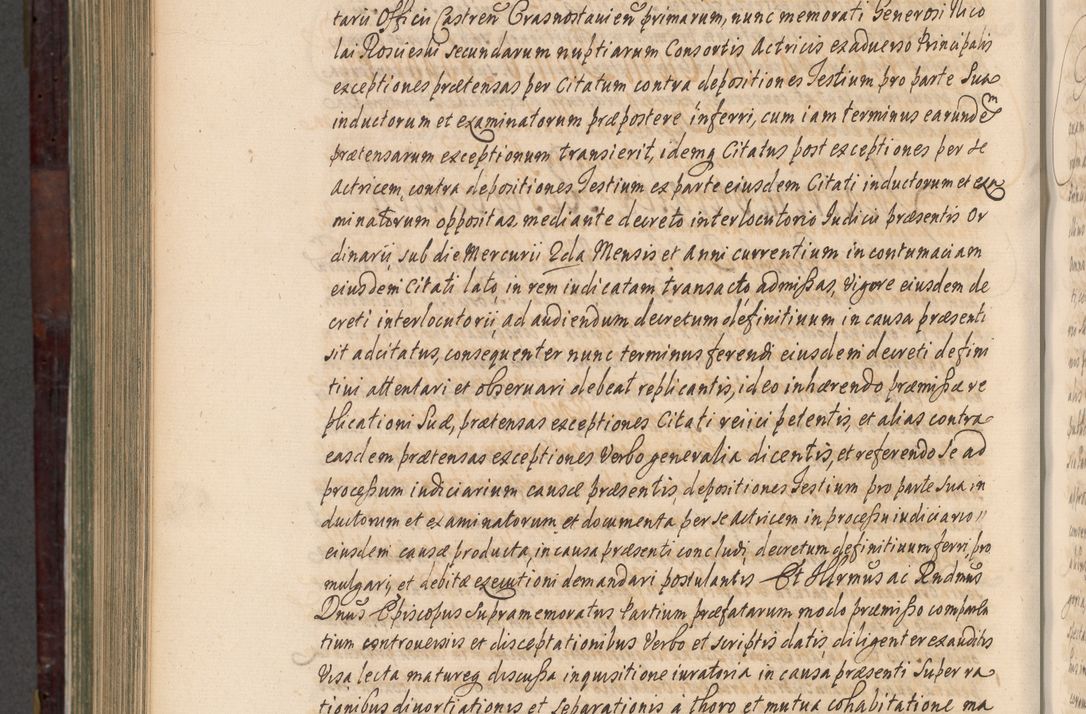 tarii Officii Castreñ Crasnostavieñ primarum, nunc memorati Generosi Nico
lai Roscieski secundarum nuptiarum Consortis Actricis ex adverso Principalis
exceptiones prætensas per Citatum contra depositiones Testium pro parte Sua
inductorum et examinatorum præpostere inferri, cum iam terminus earundem
prætensarum exceptionum transierit, idemq Citatus post exceptiones per se
Actricem, contra depositiones Testium ex parte eiusdem Citati inductorum et exa
minatorum oppositas, mediante decreto interlocutorio Iudicii præsentis Or
dinarii, sub die Mercurii 2da Mensis et Anni currentium in contumaciam
eiusdem Citati lato, in rem iudicatam transacto admißas, vigore eiusdem de
creti interlocutorii, ad audiendum decretum definitiuum in causa præsenti
sit adcitatus, consequenter nunc terminus ferendi eiusdem decreti defini
tiui attentari et obseruari debeat replicantis, ideo inhærendo præmißæ re
plicationi Suæ, prætensas exceptiones Citati reiici petentis, et alias contra
easdem prætensas exceptiones Verbo generalia dicentis, et referendo se ad
proceßum iudiciarium causæ præsentis, depositiones Testium pro parte Sua in
ductorum et examinatorum et documenta per se Actricem in proceßu iudiciario //
eiusdem causæ producta, in causa præsenti concludi, decretum definitiuum ferri, pro
mulgari, et debitæ executioni demandari postulantis Et Illrmus ac Rndmus
Dnus Episcopus Supramemoratus Partium præfatarum modo præmißo comparen
tium controuersiis et disceptationibus Verbo et scriptis datis diligenter exauditis
Visa lecta matureq discußa inquisitione iuratoria in causa præsenti Super ra
tionibus diuortiationis et Separationis à thoro et mutua cohabitatione ma